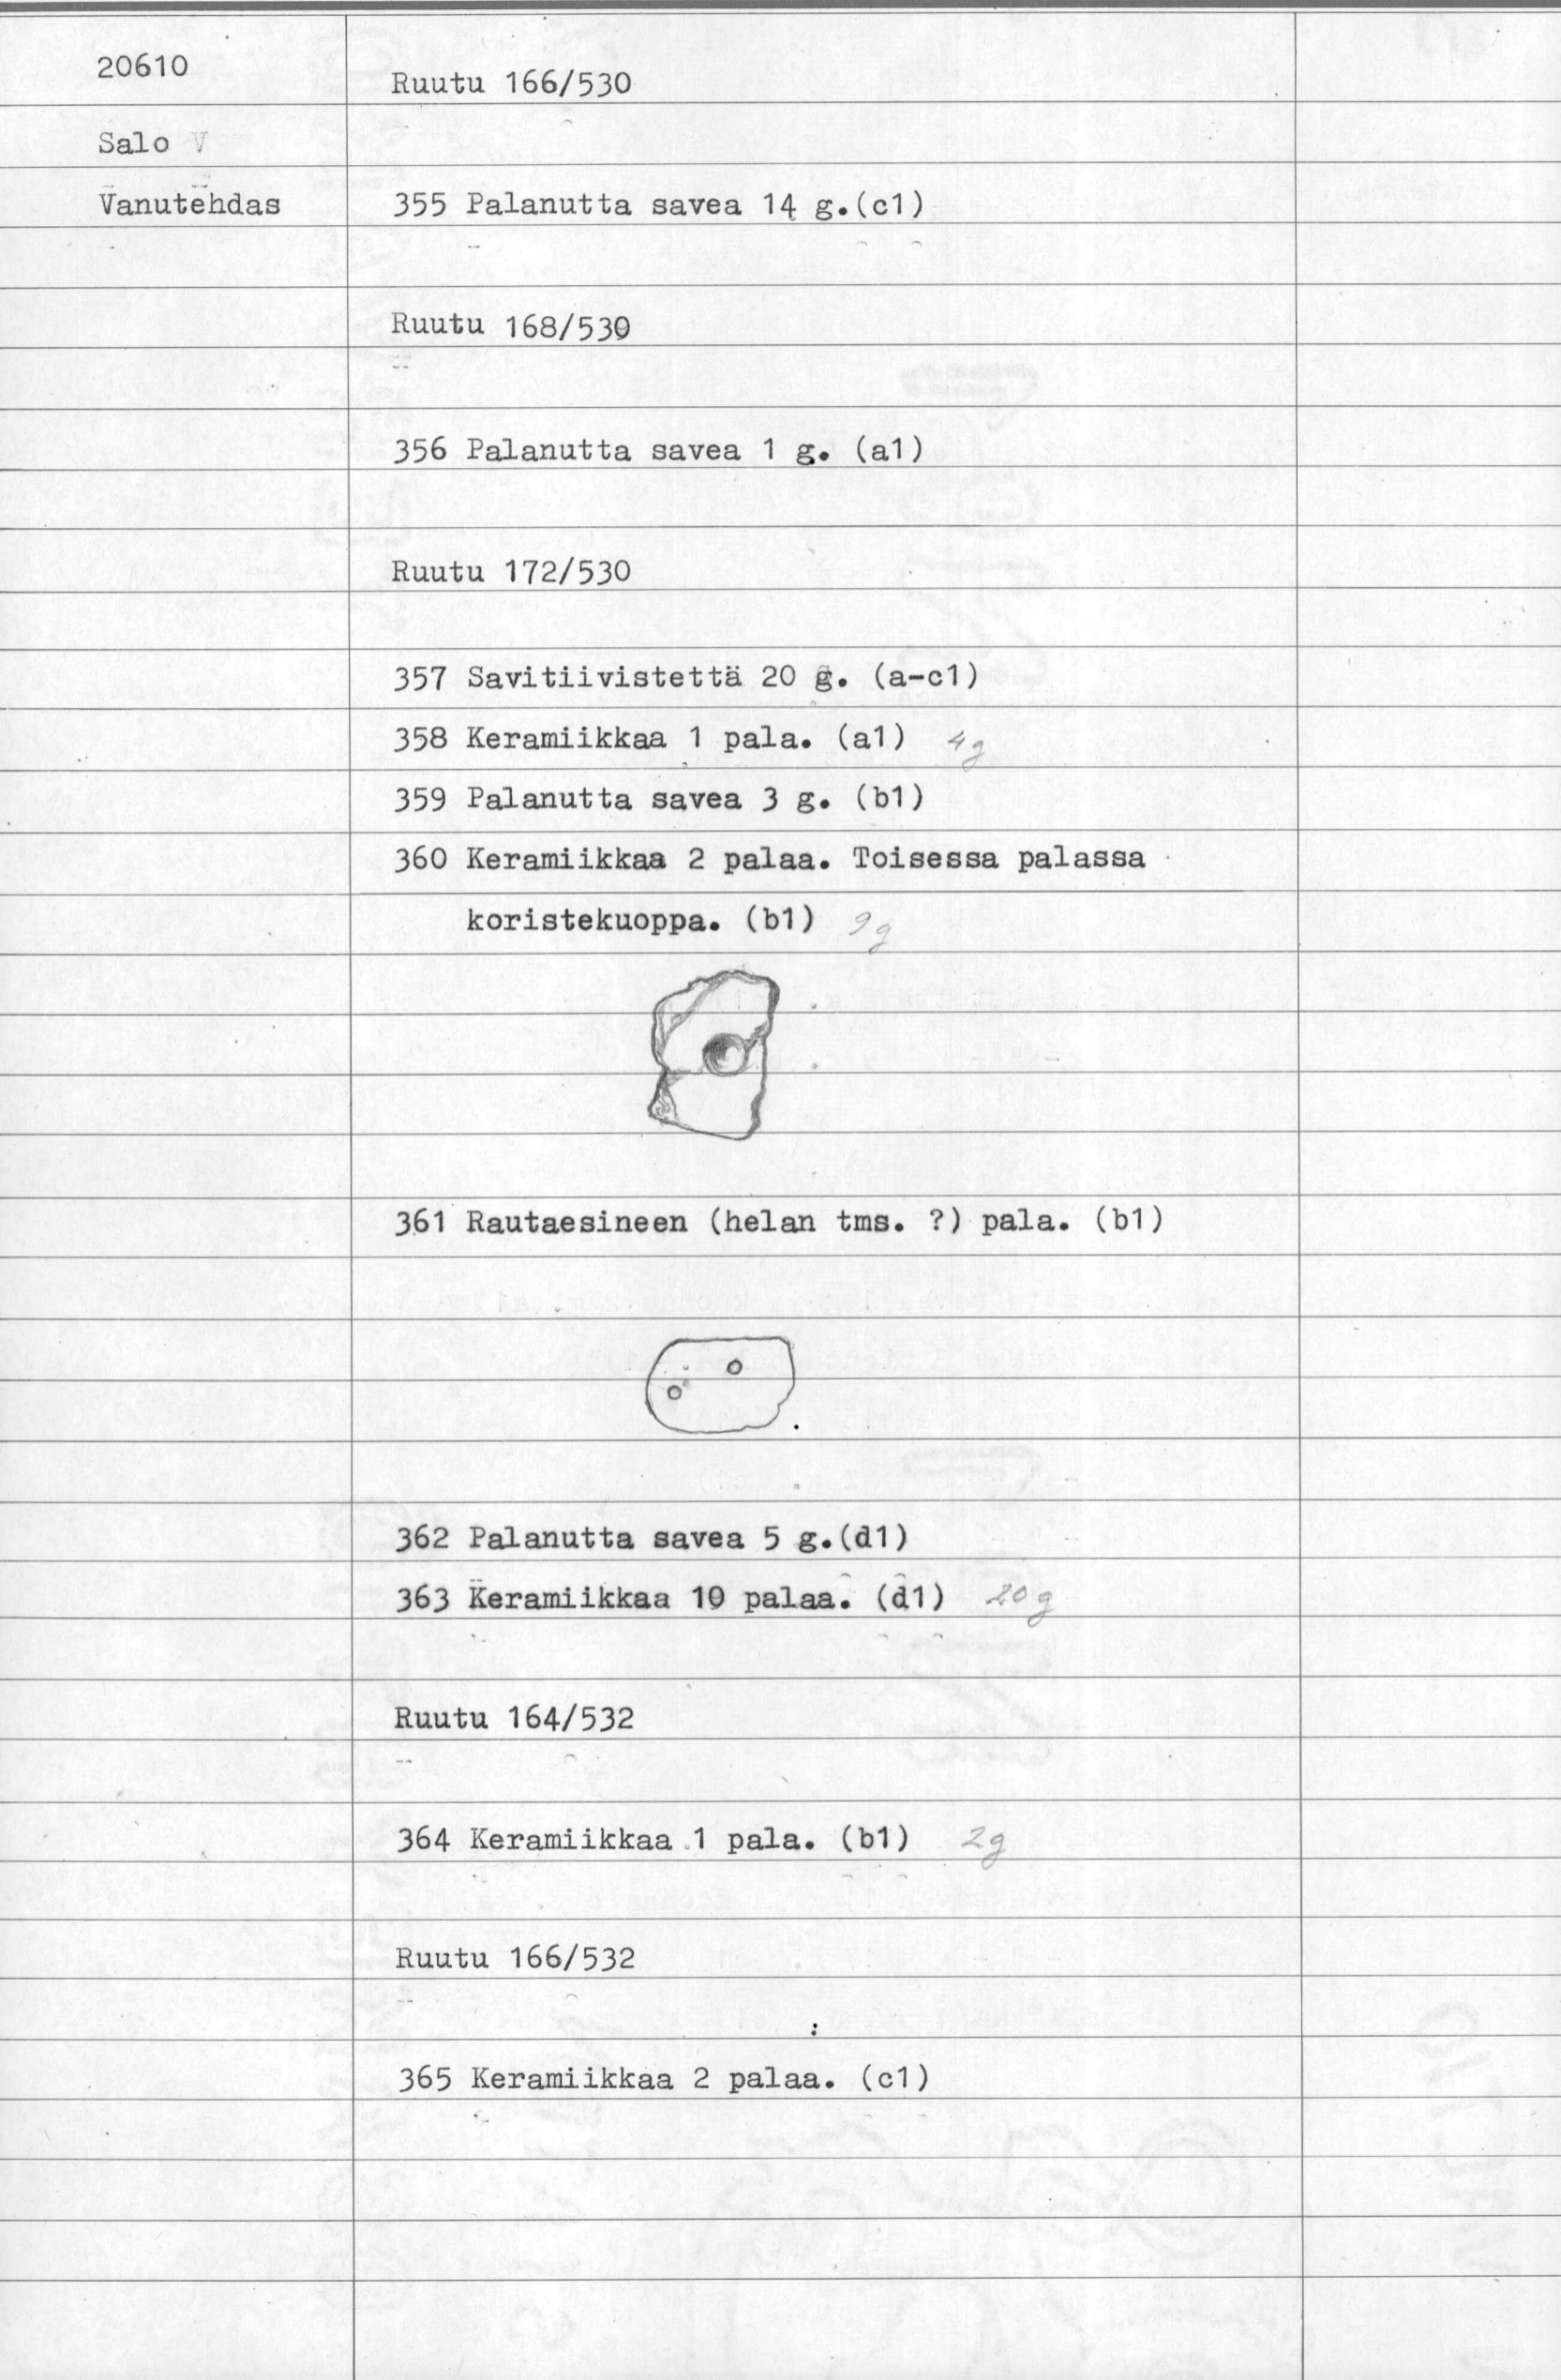 20610
Ruutu 166/530
Salo V
Vanutehdas
355 Palanutta savea 14 g.(c1)
Ruutu 168/530
356 Palanutta savea 1 g. (a1)
Ruutu 172/530
357 Savitiivistettä 20 g. (a-c1)
358 Keramiikkaa 1 pala. (a1) 4g
359 Palanutta savea 3 g. (b1)
360 Keramiikkaa 2 palaa. Toisessa palassa
koristekuoppa. (b1) 9g
361 Rautaesineen (helan tms. ?) pala. (b1)
362 Palanutta savea 5 g.(d1)
363 Keramiikkaa 10 palaa. (d1) 20g
Ruutu 164/532
364 Keramiikkaa 1 pala. (b1) 2g
Ruutu 166/532
365 Keramiikkaa 2 palaa. (c1)